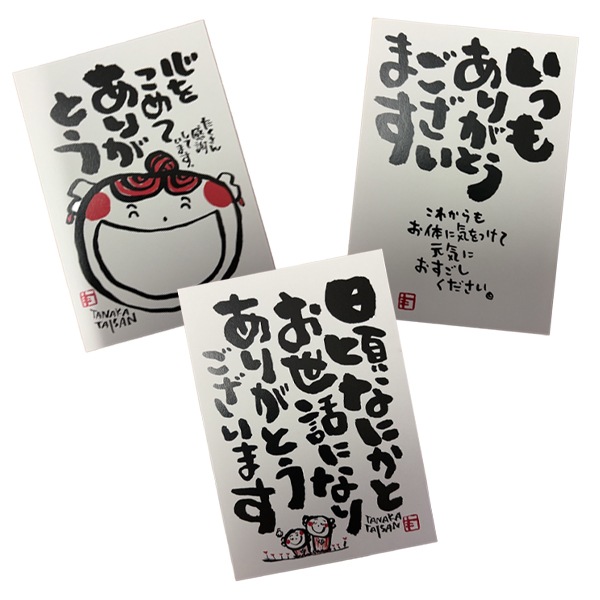 心を
こめて
ありが
とう
たくさん
感謝
してい
ます。
TANAKA
TAISAN
いつも
ありがとう
ござい
ます
これからも
お体に気をつけて
元気に
おすごし
ください。
日頃なにかと
お世話になり
ありがとう
ございます
TANAKA
TAISAN